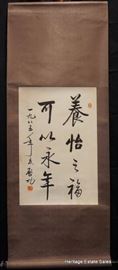 養怡之福
可以永年
一九八五年夏 啟功
Heritage Estate Sales